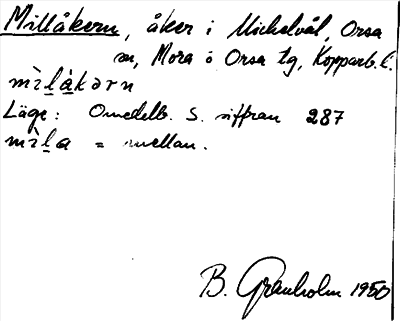 Millåkern, åker i Mickelvål, Orsa
sn, Mora o Orsa tg, Kopparb. l.
mìḷàkərn
Läge: Omedelb. S. siffran 287
mìḷa = mellan.
B. Granholm 1950